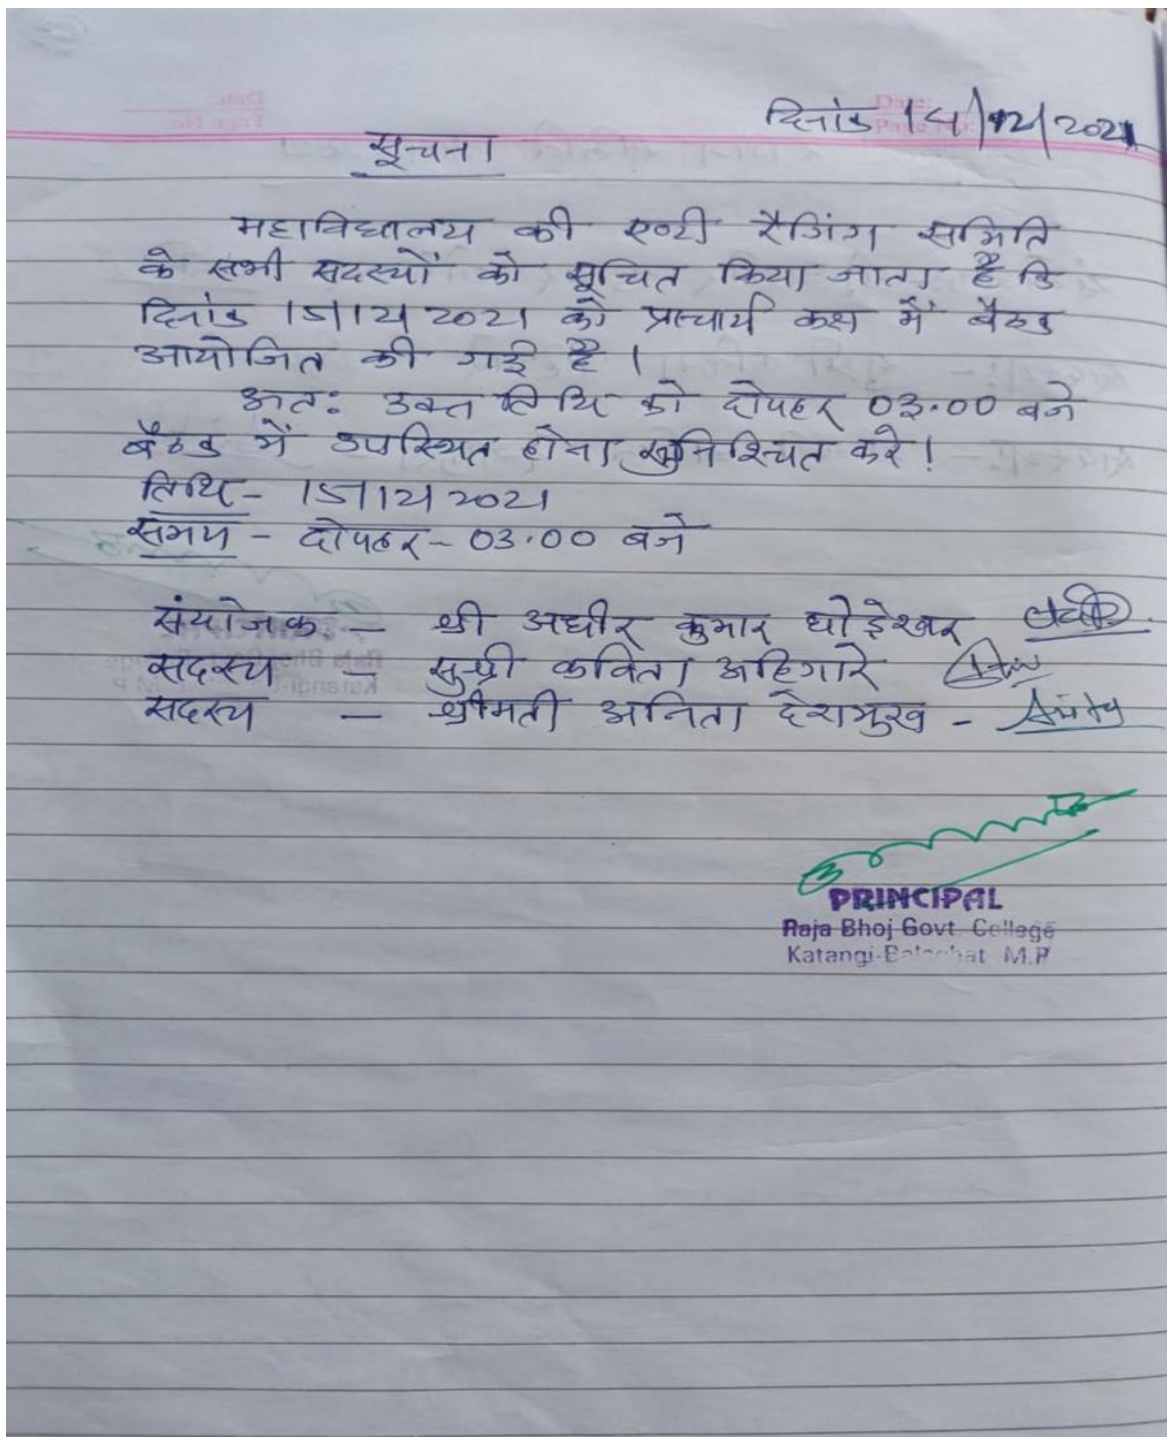 दिनांक 14/12/2021
सूचना
महाविद्यालय की एण्टी रैगिंग समिति
के सभी सदस्यों को सूचित किया जाता है कि
दिनांक 15/12/2021 को प्राचार्य कक्ष में बैठक
आयोजित की गई है ।
अतः उक्त तिथि को दोपहर 03.00 बजे
बैठक में उपस्थित होना सुनिश्चित करे !
तिथि - 15/12/2021
समय - दोपहर - 03.00 बजे
संयोजक - श्री अधीर कुमार घोड़ेश्वर
सदस्य - सुश्री कविता अहिगारे
सदस्य - श्रीमती अनिता देशमुख -
PRINCIPAL
Raja Bhoj Govt. College
Katangi-Balaghat M.P